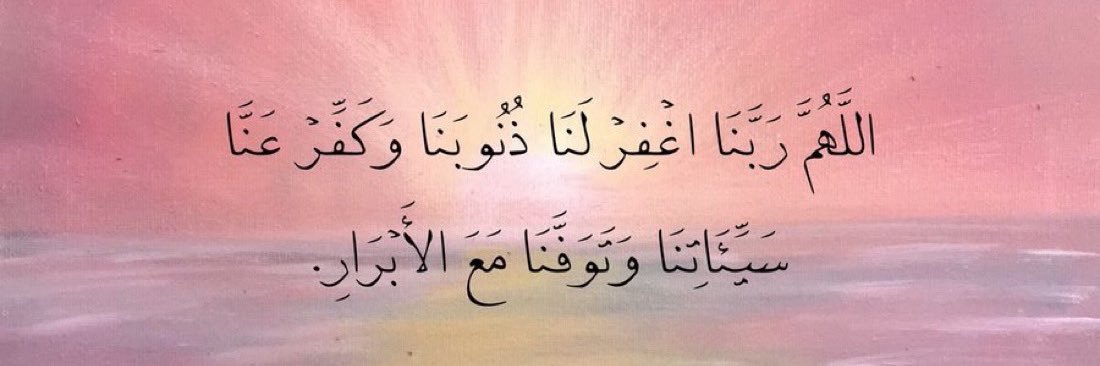 اللَّهُمَّ رَبَّنَا اغْفِرْ لَنَا ذُنُوبَنَا وَكَفِّرْ عَنَّا
سَيِّئَاتِنَا وَتَوَفَّنَا مَعَ الأَبْرَارِ.